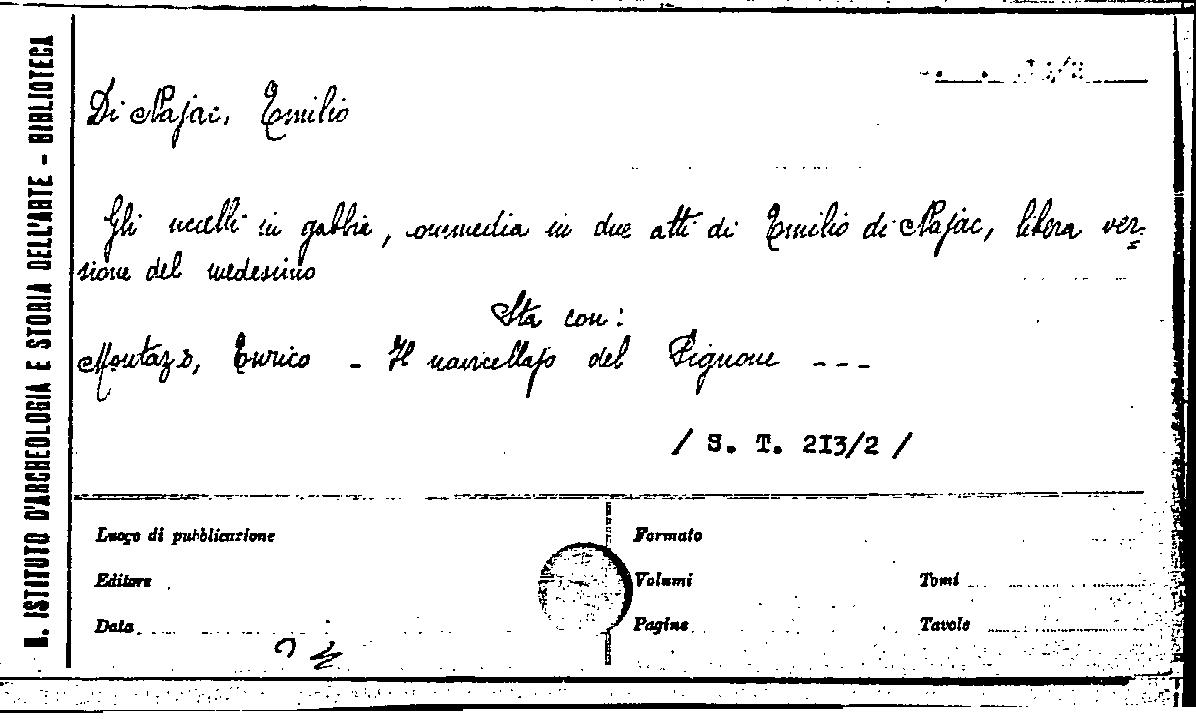 N. ISTITUTO D'ARCHEOLOGIA E STORIA DELL'ARTE - BIBLIOTECA
Di Najac, Emilio
Gli uccelli in gabbia, commedia in due atti di Emilio di Najac, libera ver=
sione del medesimo
Sta con:
Montazo, Enrico - Il navicellajo del Pignone ---
/ S. T. 213/2 /
Luogo di pubblicazione
Formato
Editore
Volumi
Tomi
Data
Pagine
Tavole